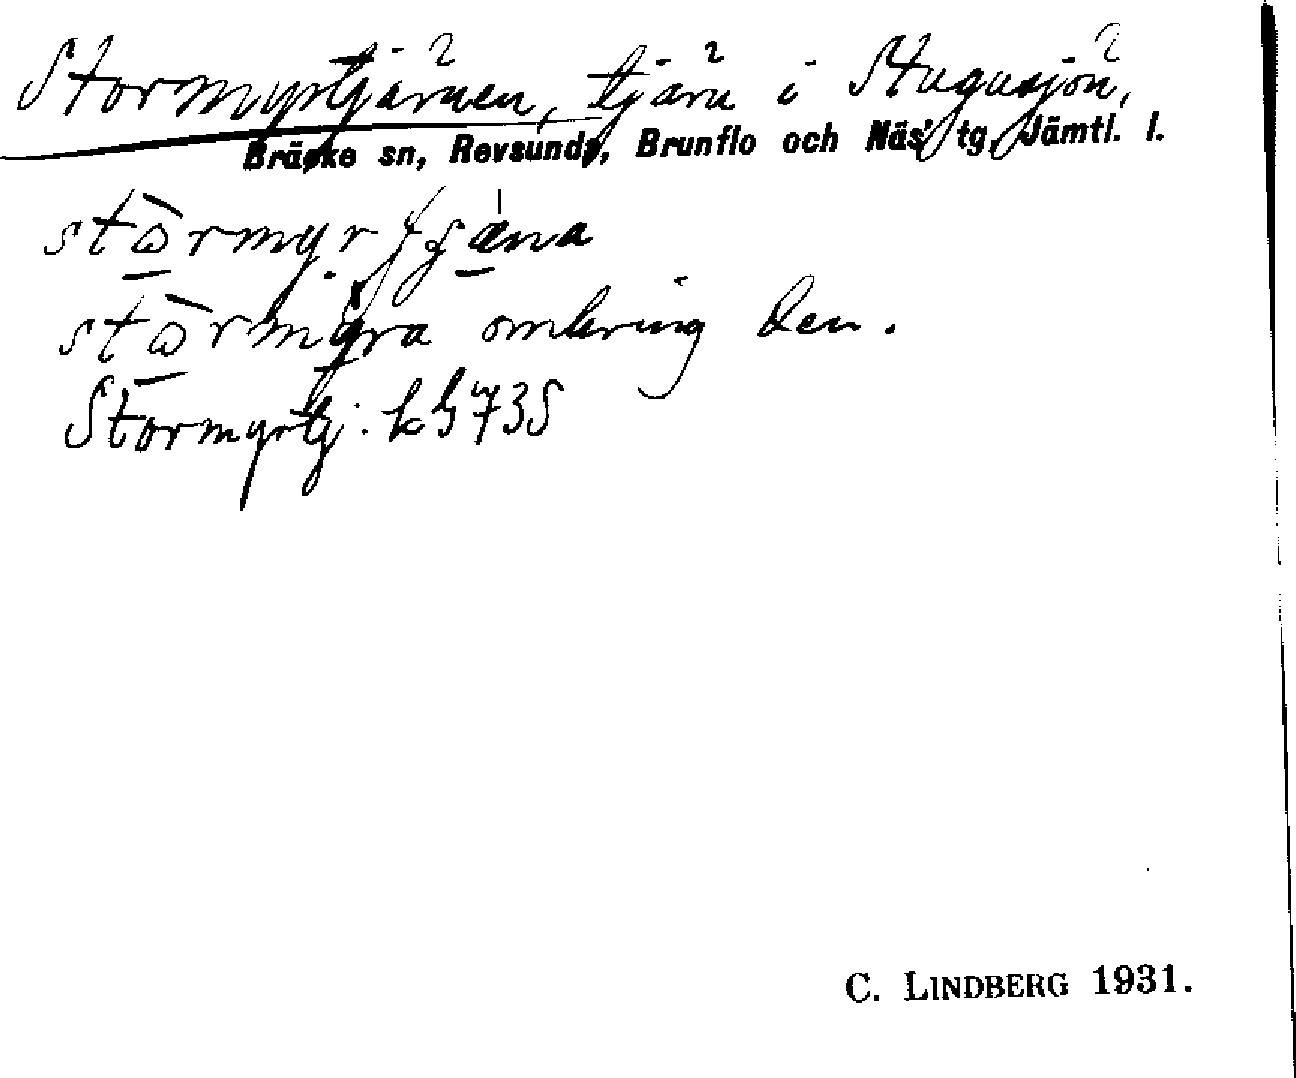 Stormyrtjärnen, tjärn i Stugusjön,
Bräcke sn, Revsunds, Brunflo och Näs' tg, Jämtl. l.
omkring den.
Stormyrtj. kb 735
C. LINDBERG 1931.